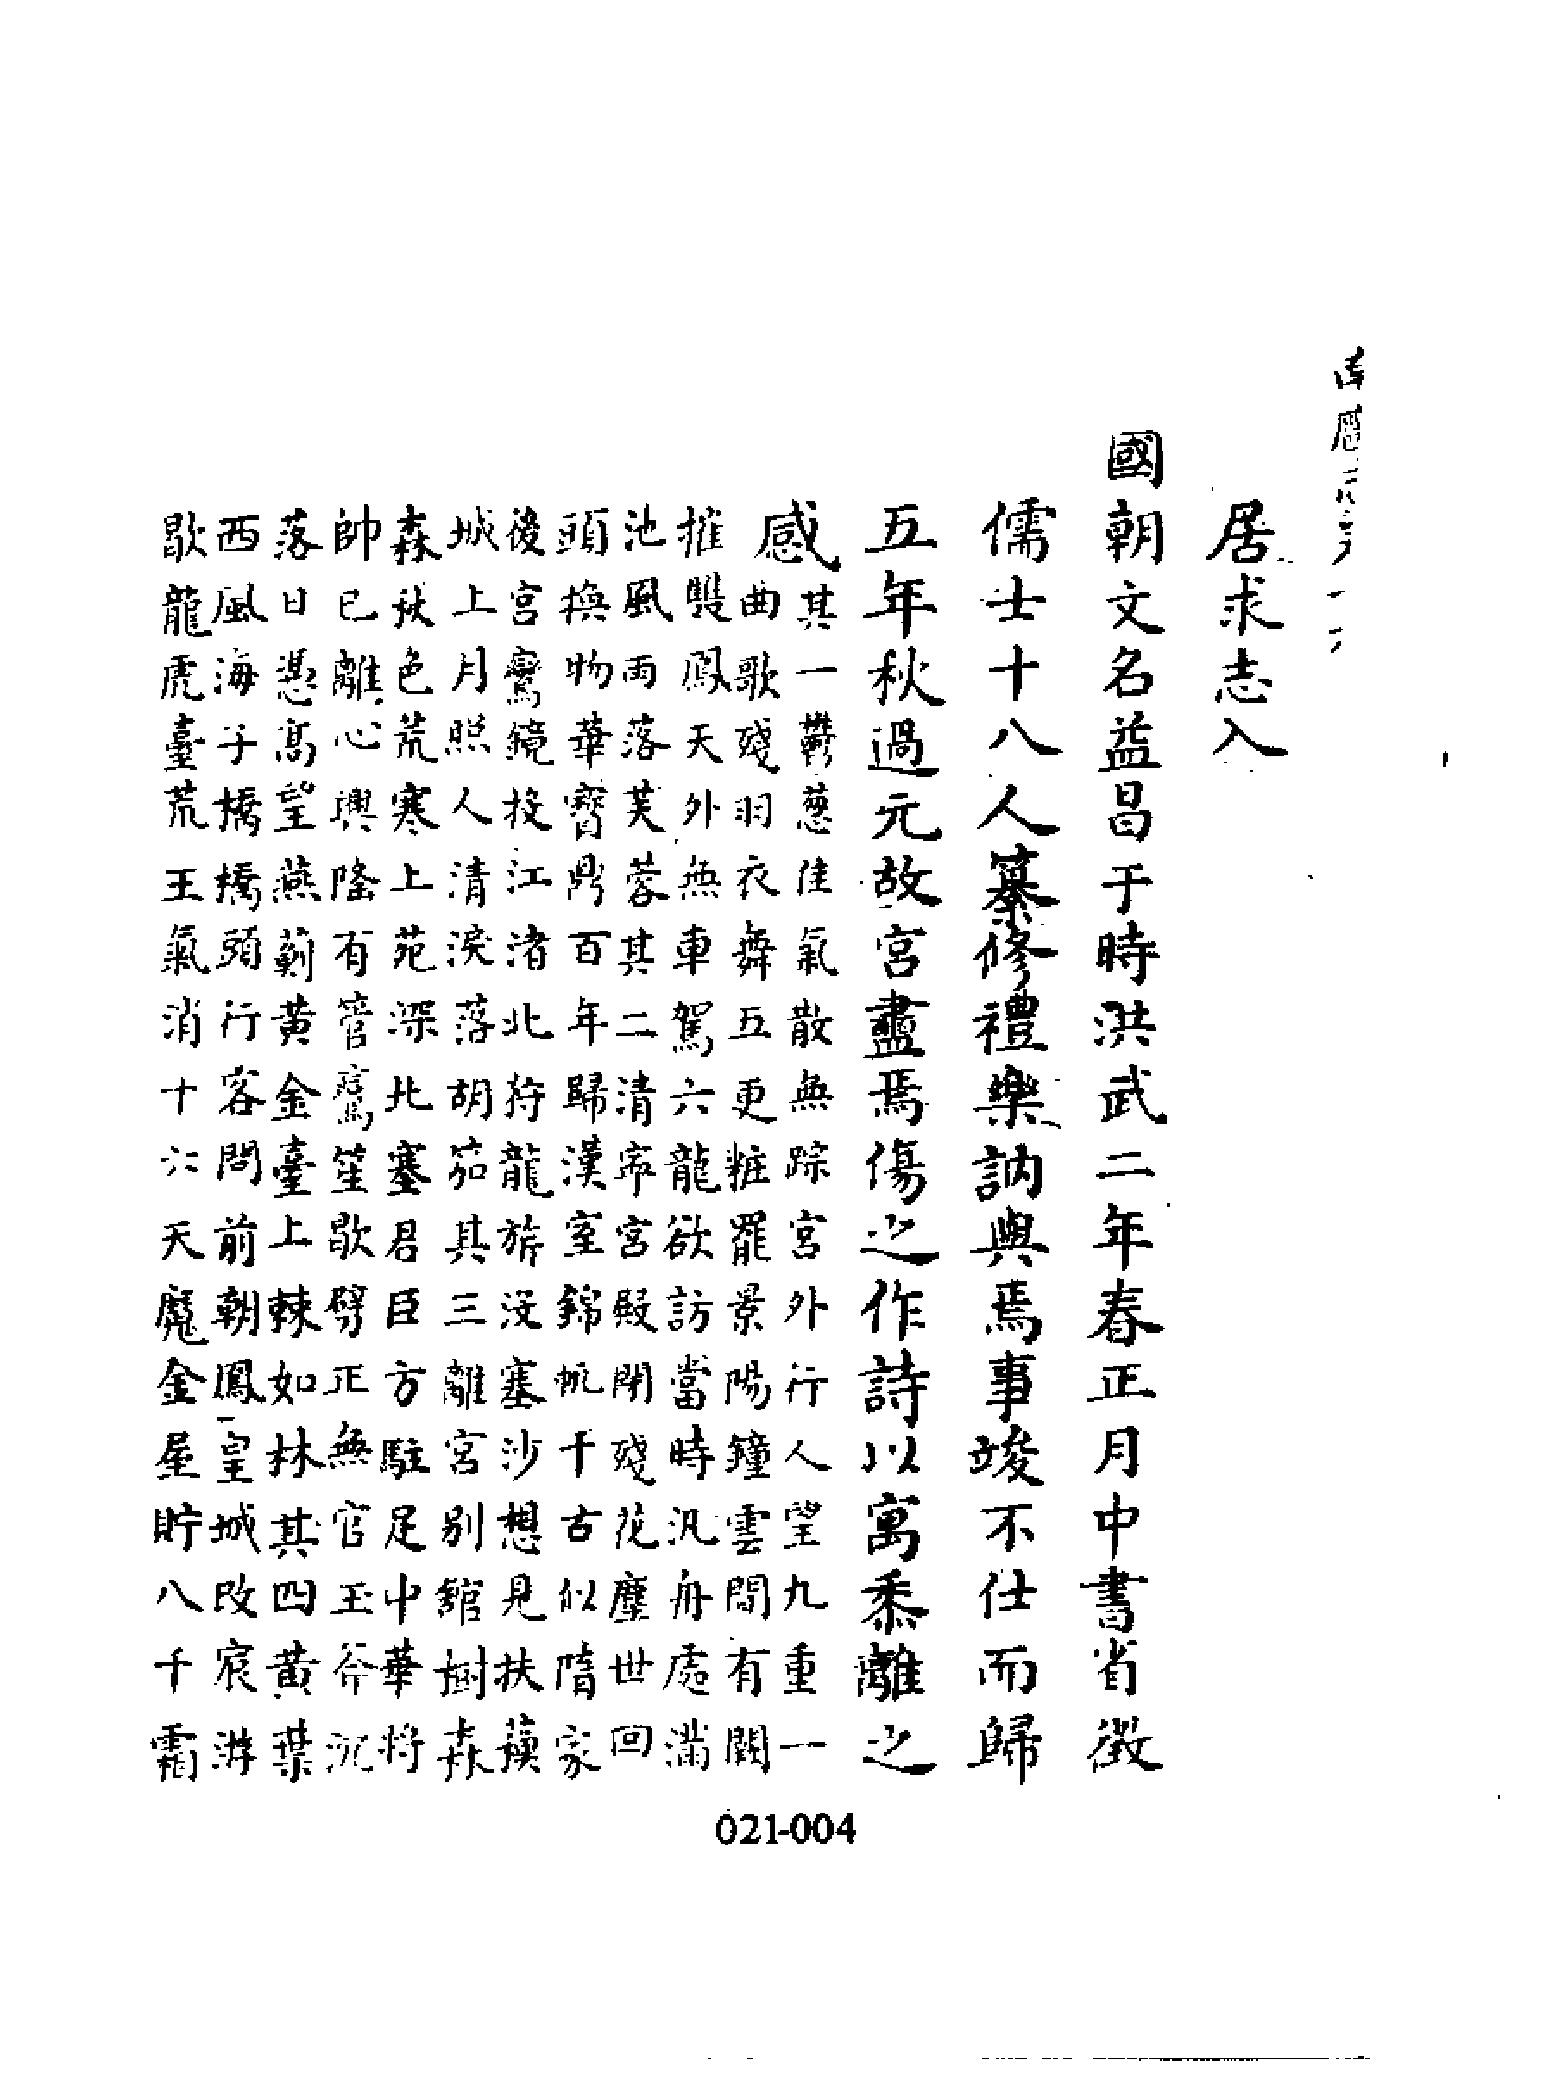 居求志入
國朝文名益昌于時洪武二年春正月中書省徵
儒士十八人纂修禮樂訥與焉事竣不仕而歸
五年秋過元故宮盡焉傷之作詩以寓黍離之
感
其一鬱葱佳氣散無踪宮外行人望九重一
曲歌殘羽衣舞五更粧罷景陽鐘雲間有闕
摧雙鳳天外無車駕六龍欲訪當時汎舟處滿
池風雨落芙蓉其二清寧宮殿閉殘花塵世回
頭換物華寳鼎百年歸漢室錦帆千古似隋家
後宮鸞鏡投江渚北狩龍旂没塞沙想見扶蘓
城上月照人清淚落胡笳其三離宮別舘樹森
森秋色荒寒上苑深北塞君臣方駐足中華將
帥已離心興隆有管鸞笙歇劈正無官玉斧沉
落日憑高望燕薊黄金臺上棘如林其四黄葉
西風海子橋橋頭行客問前朝鳳皇城改宸遊
歇龍虎臺荒王氣消十六天魔金屋貯八千霜
021-004